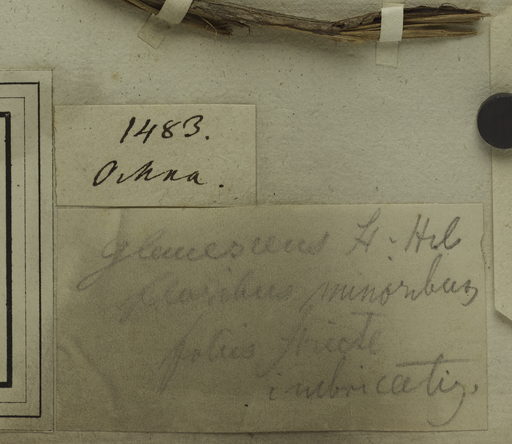 1483.
Ochna.
glaucescens H. Hel
floribus minoribus
foliis
imbricatis.